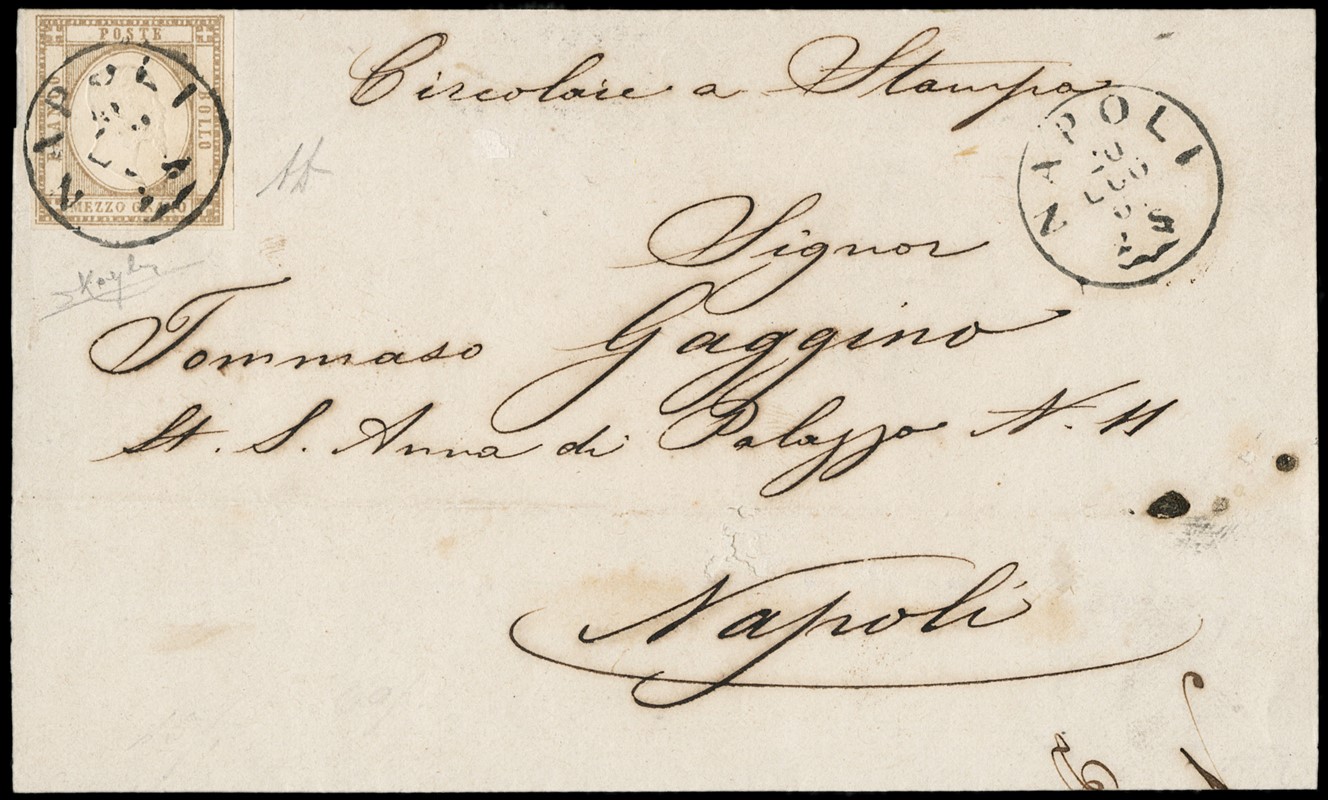 POSTE
FRANCO
BOLLO
MEZZO GRANO
NAPOLI
Circolare a Stampa
NAPOLI
LUG
Signor
Tommaso Gaggino
St. S. Anna di Palazzo N. 11
Napoli